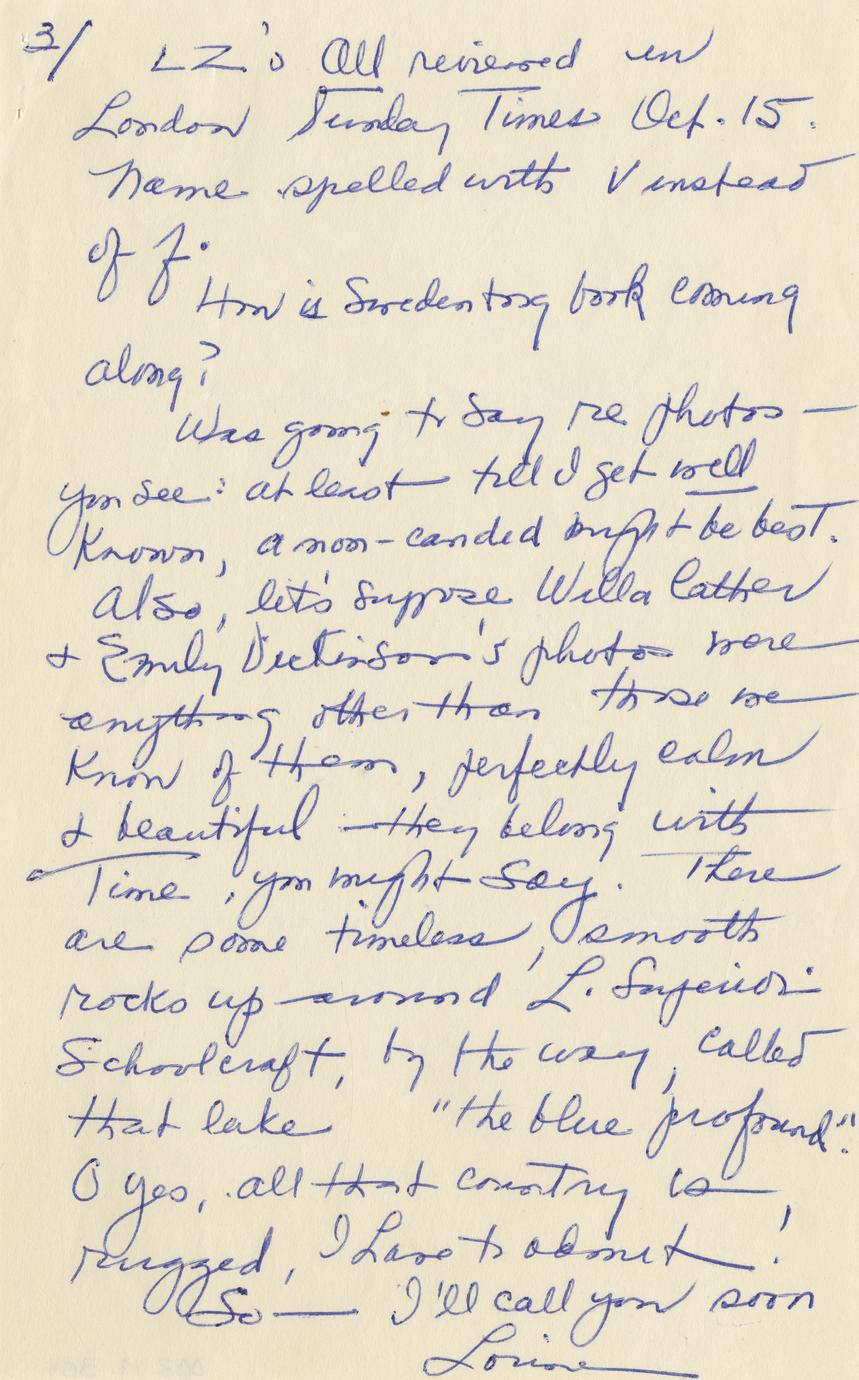 3/ LZ's All reviewed in
London Sunday Times Oct. 15.
Name spelled with V instead
of f.
How is Swedenborg book coming
along?
Was going to say re photos —
you see: at least till I get well
known, a non-candid might be best.
Also, let's suppose Willa Cather
& Emily Dickinson's photos were
anything other than those we
know of them, perfectly calm
& beautiful — they belong with
Time, you might say. There
are some timeless, smooth
rocks up around L. Superior.
Schoolcraft, by the way, called
that lake "the blue profound".
O yes, all that country is
rugged, I have to admit!
So — I'll call you soon
Lorine